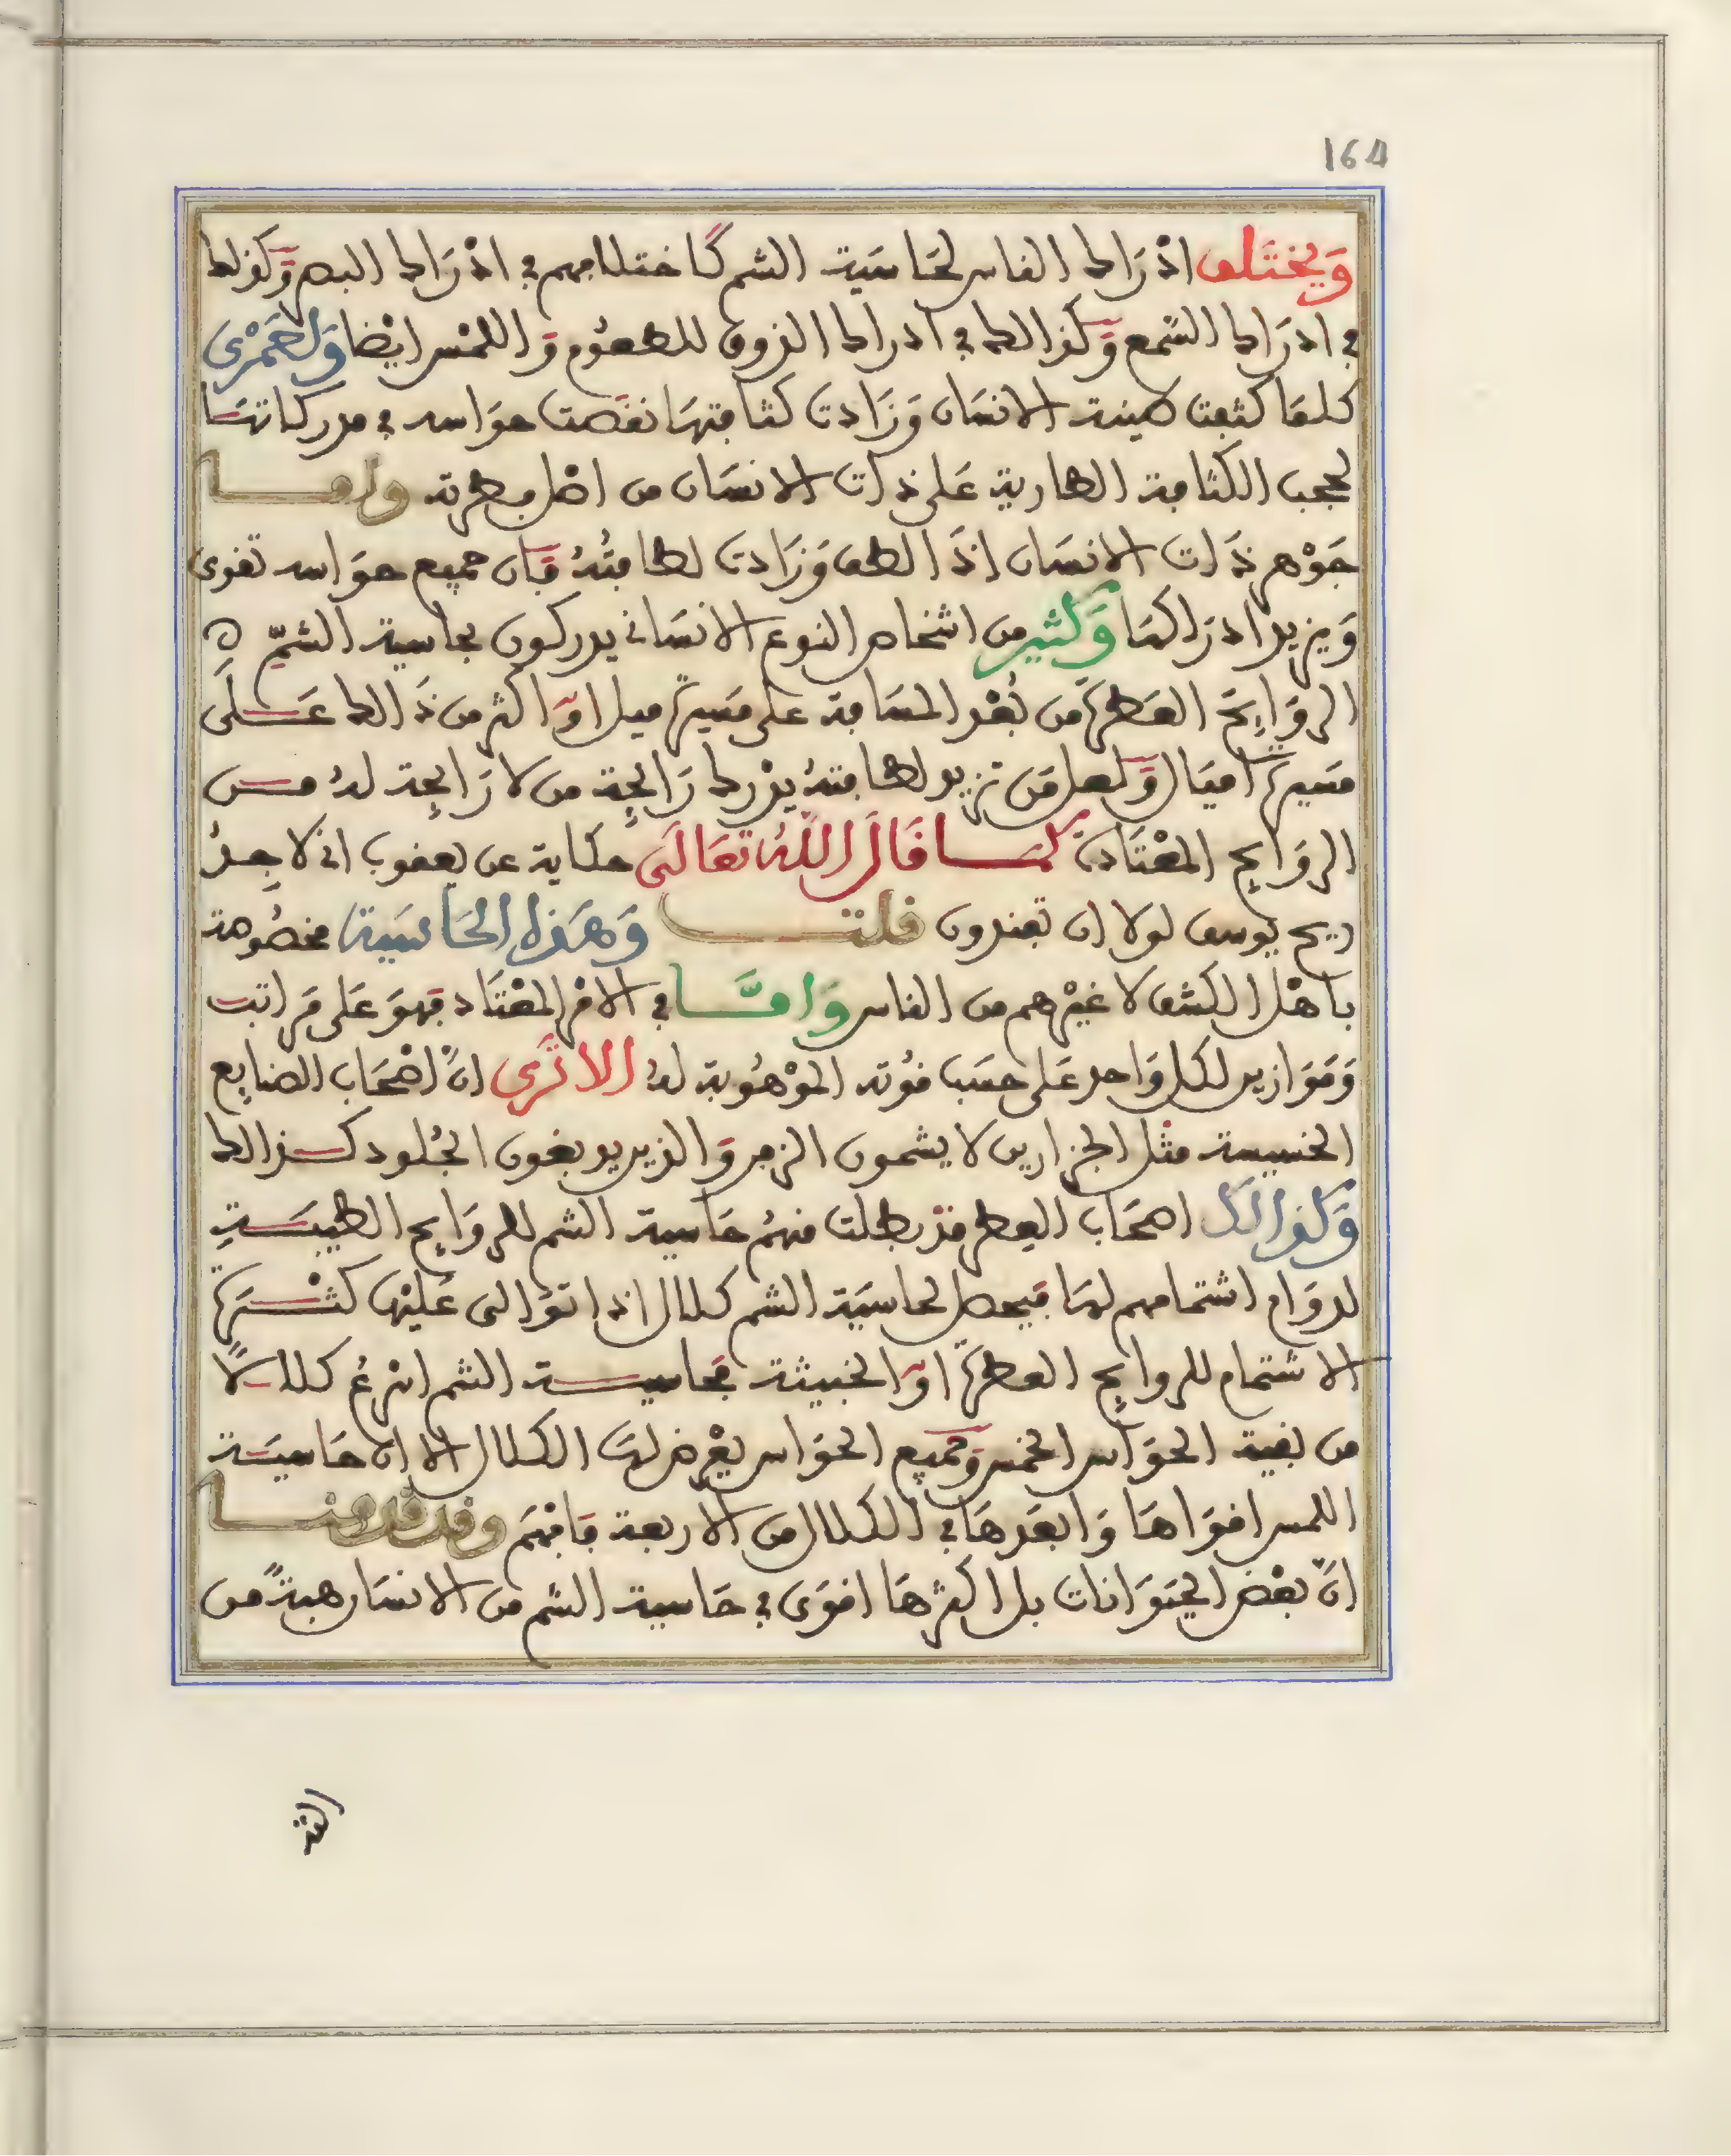 164
وَيختَلف ادْرَاك الناس لحَاسَية الشم كَاختلافهم في ادْرَاك البصر وَكذلك
في ادرَاك السّمع وَكذالك في ادراك الذوق للطعُوم وَاللمْس ايْضا وَلعَمْرى
كلمَا كثفت طينة الانسَان وَزَادت كثافتهَا نقصت حوَاسه في مدركاتهَا
لحجب الكثافة الطارية عَلى ذات الانسَان من اصْل فطرته وامـا
جَوْهر ذَات الانسَان اذَا لطف وَزَادت لطافتُهُ فَان جميع حوَاسه تقوى
وَيزيد ادرَاكهَا وَكثير من اشخاص النوع الانسَاني يدركون بحاسية الشمِّ ه
الروَايحَ العَطرَة من بُعْد المسَافة على مَسيرة ميل اوَ اكثر من ذَالك عَـلَى
مَسيرة اميَال وَلعل مَن تزيد لطافتهُ يدْرك رَايحِة من لا رَايحِة لهُ مـن
الروَايحِ المعْتَادة كمـا قَالَ اللهُ تعَالَى حكاية عن يعقوب اني لاجِـدُ
ريح يوسف لولا ان تفندون قلتـ وَهَذه الحَاسَية مخصُوصة
باهْل الكشف لا غيْرهم من الناس وَامـَّا في الامْر المعْتَاد فهوَ عَلى مَراتب
وَمَوَازين لكل وَاحد عَلى حسَب قوُته الموْهُوبة لهُ الا تَرَى انَّ اصْحَاب الصنايع
الخسيسة مثل الجزارين لا يشمون الزفر وَالذين يدبغون الجُلود كـذالك
وَكذالك اصحَاب العِطر قدْ بطلت منهُم حَاسية الشم للروَايح الطيبَـةِ
لدوَام اشتمامهم لهَا فيحصل لحاسيَة الشم كلال اذا توَالى عَليْهَا كثْـرَة
الاشتمام للروايحِ العطرَة اوَ الخبيثة فحاسيـة الشم اسْرعُ كلالـاً
من بقية الحوَاس الخمس وَجميع الحوَاس يعْرض لهَا الكلال الا انَّ حَاسيَـة
اللمس اقوَاهَا وَابعَدهَا في الكلال من الاربعة فَافْهَم وقد قدمنـا
انَّ بعْض الحيَوَانات بل اكثرهَا اقوَى في حَاسية الشم من الانسَان هبةً من
الله